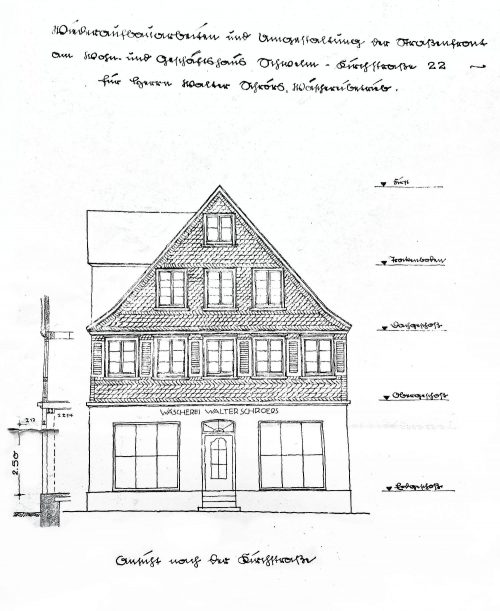 Wiederaufbauarbeiten und Umgestaltung der Straßenfront
am Wohn- und Geschäftshaus Schwelm - Kirchstraße 22
für Herrn Walter Schrörs, Wäschereibetrieb.
First
Trockenboden
Dachgeschoß
Obergeschoß
WÄSCHEREI WALTER SCHROERS
2.50
Erdgeschoß
Ansicht nach der Kirchstraße